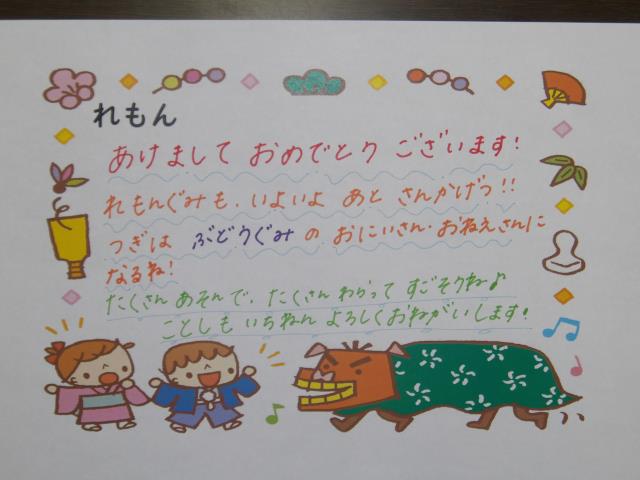 れもん
あけまして おめでとう ございます!
れもんぐみも、いよいよ あと さんかげつ!!
つぎは ぶどうぐみ の おにいさん・おねえさんに
なるね!
たくさん あそんで、たくさん わらって すごそうね♪
ことしも いちねん よろしくおねがいします!